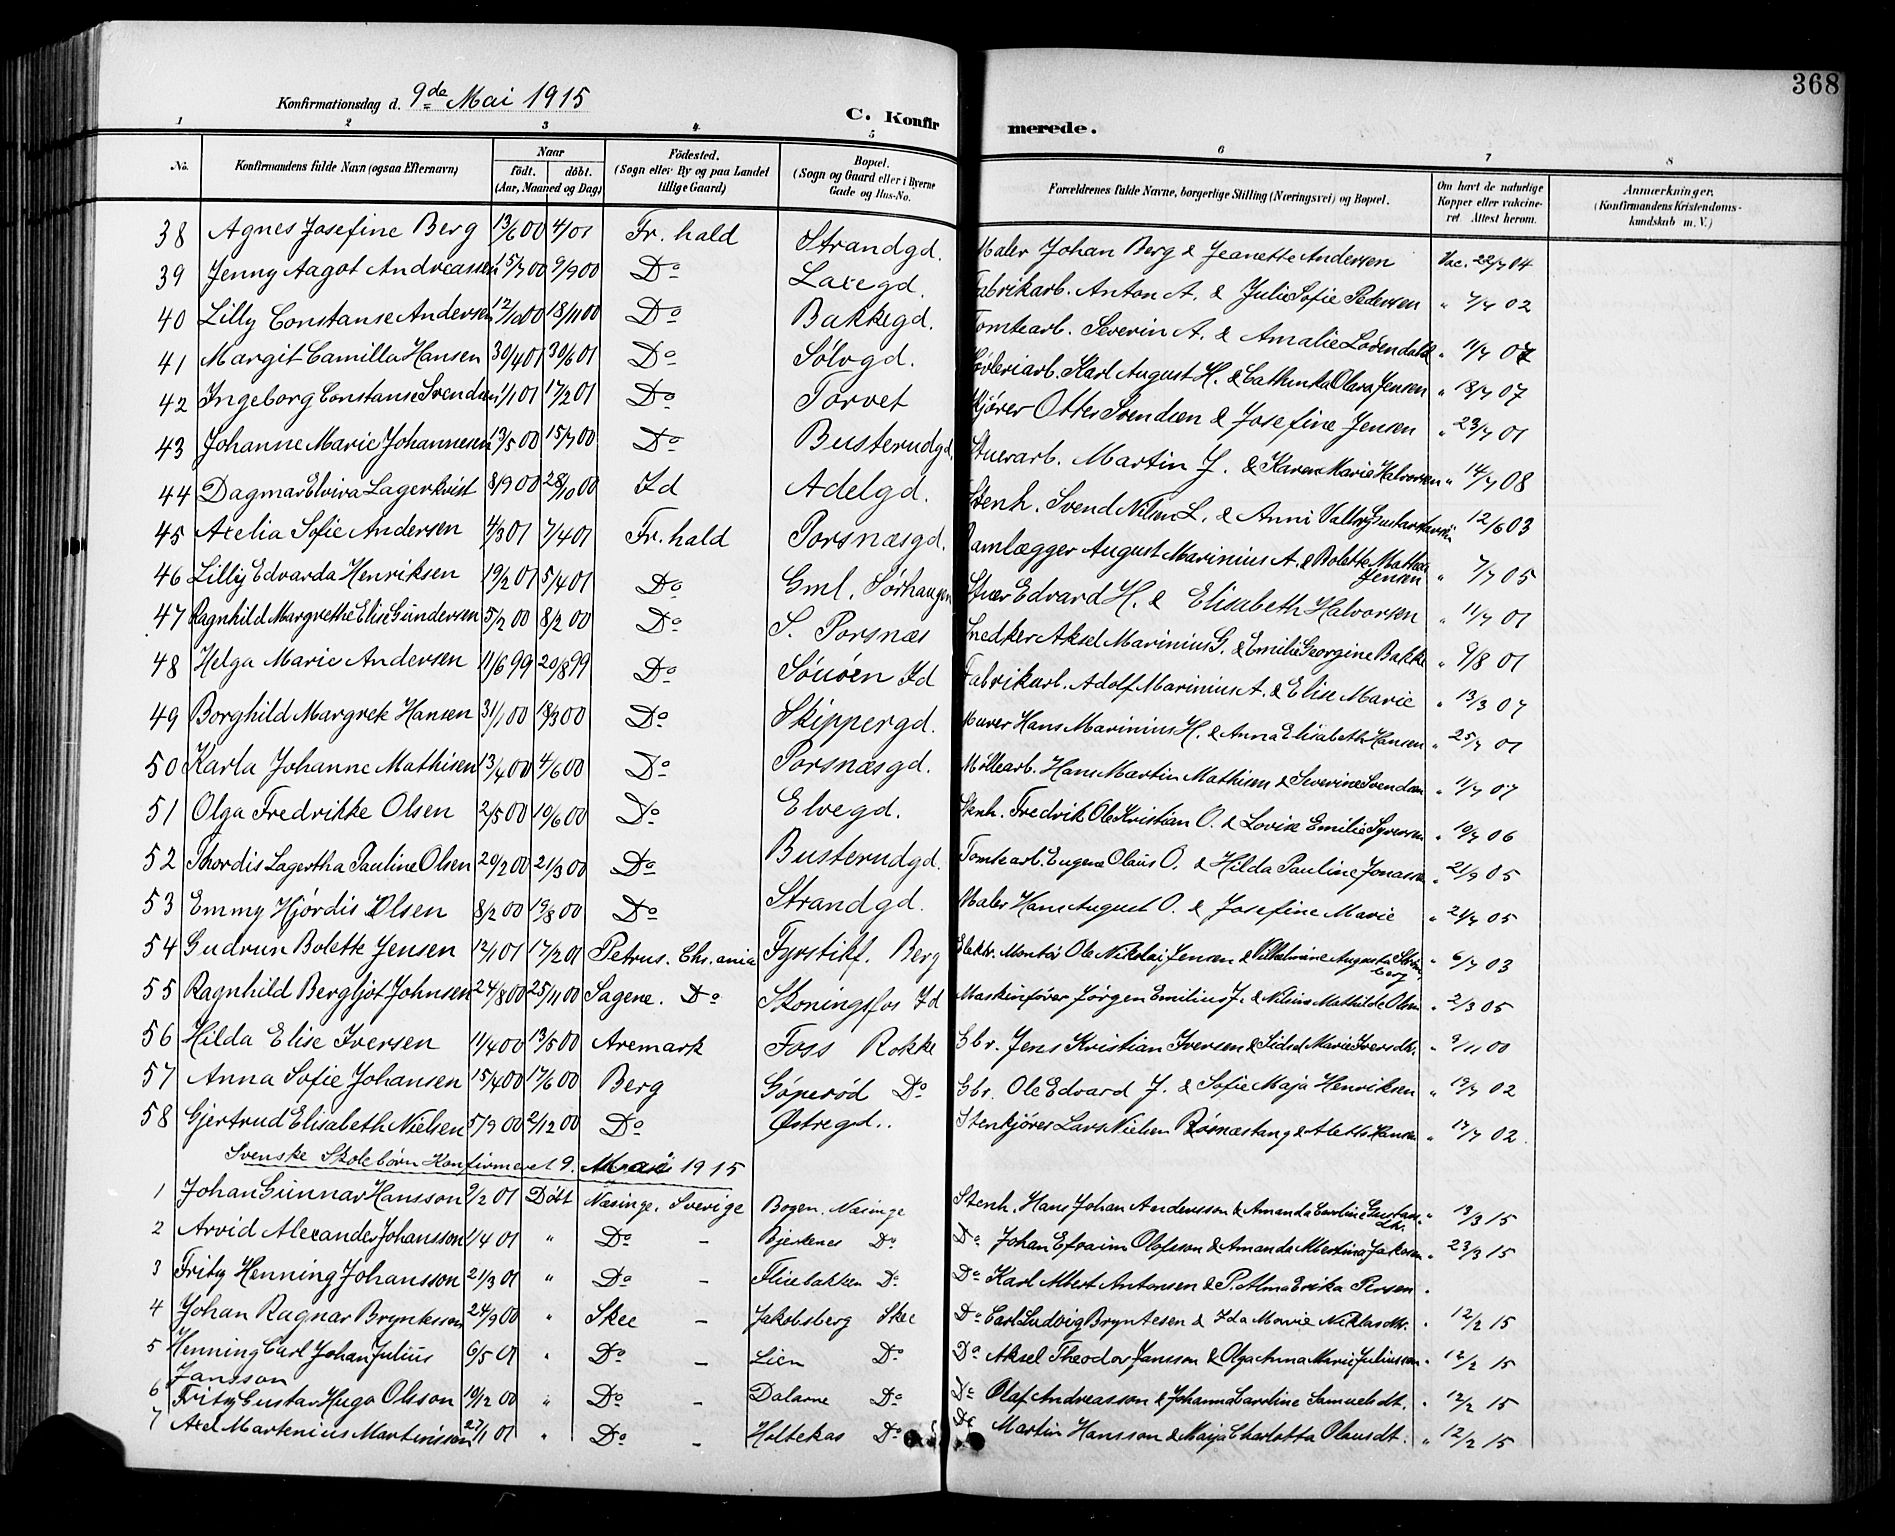 368
Konfirmationsdag d. 9de Mai 1915
C. Konfirmerede.
1 2 3 4 5 6 7 8
No. Konfirmandens fulde Navn (ogsaa Efternavn) Naar født. døbt. (Aar, Maaned og Dag) Födested. (Sogn eller By og paa Landet tillige Gaard) Bopæl. (Sogn og Gaard eller i Byerne Gade og Hus-No. Forældrenes fulde Navne, borgerlige Stilling (Næringsvei) og Bopæl. Om havt de naturlige Kopper eller vakcineret. Attest herom. Anmærkninger. (Konfirmandens Kristendomskundskab m. V.)
38 Agnes Josefine Berg 13/6 00 4/01 Fr. hald Strandgd. Maler Johan Berg & Jeanette Andersen Vac. 22/7 04
39 Jenny Aagot Andreassen 15/7 00 9/9 00 Do Laxegd. Fabrikarb. Anton A. & Julie Sofie Pedersen " 7/7 02
40 Lilly Constanse Andersen 12/10 00 18/11 00 Do Bakkegd. Tomtearb. Severin A. & Amalie " 11/7 07
41 Margit Camilla Hansen 30/4 01 30/6 01 Do Sølvgd. Høvleriarb. Karl August H. & Cathinka Olava Jensen " 18/7 07
42 Ingeborg Constanse Svendsen 1/1 01 17/2 01 Do Torvet Kjører Otter Svendsen & Josefine Jensen " 23/7 01
43 Johanne Marie Johannesen 13/5 00 15/7 00 Do Busterudgd. Stuerarb. Martin J. & Karen Marie Halvorsen " 14/7 08
44 Dagmar Elvira Lagerkvist 8/9 00 28/10 00 Id Adelgd. Stenh. Svend Nilsen L. & Anni 12/6 03
45 Axelia Sofie Andersen 4/3 01 7/4 01 Fr. hald Porsnæsgd. Damlægger August Marinius A. & Bolette Mathea Jensen " 7/7 05
46 Lilly Edvarda Henriksen 19/2 01 5/4 01 Do Gml. Sørhaugen Stuer Edvard H. & Elisabeth Halvorsen " 11/7 01
47 Ragnhild Margrethe Elise Gundersen 5/2 00 8/2 00 Do S. Porsnæs Snedker Aksel Marinius G. & Emilie Georgine Bakke " 9/8 01
48 Helga Marie Andersen 11/6 99 20/8 99 Do Id Fabrikarb. Adolf Marinius A. & Elise Marie " 13/3 07
49 Borghild Margrek Hansen 31/1 00 18/3 00 Do Skippergd. Murer Hans Marinius H. & Anna Elisabeth Hansen " 25/7 01
50 Karla Johanne Mathisen 13/4 00 4/6 00 Do Porsnæsgd. Møllearb. Hans Martin Mathisen & Severine Svendsen " 11/7 07
51 Olga Fredrikke Olsen 2/5 00 10/6 00 Do Elvegd. Stenh. Fredrik Ole Kristian O. & Lovise Emilie Syversen " 19/7 06
52 Thordis Lagertha Pauline Olsen 20/2 00 21/3 00 Do Busterudgd. Tomtearb. Eugene Olaus O. & Hilda Pauline Jonassen " 21/9 05
53 Emmy Hjørdis Olsen 8/2 00 19/8 00 Do Strandgd. Maler Hans August O. & Josefine Marie " 21/7 05
54 Gudrun Bolette Jensen 12/1 01 17/2 01 Petrus. Chr.ania Fyrstikf. Berg Elektr. Montør Ole Nikolai Jensen & Vilhelmine Augusta " 6/7 03
55 Ragnhild Bergljot Johnsen 24/8 00 25/11 00 Sagene. Do Skoningsfos Id Maskinfører Jørgen Emilius J. & Nilsine Mathilde Olsen " 2/3 05
56 Hilda Elise Iversen 11/4 00 13/5 00 Aremark Foss Rokke Gbr. Jens Kristian Iversen & Marie Iversdtr. " 9/11 00
57 Anna Sofie Johansen 15/4 00 17/6 00 Berg Göperød Do Gbr. Ole Edvard J. & Sofie Maja Henriksen " 19/7 02
58 Gjertrud Elisabeth Nielsen 5/9 00 2/12 00 Do Østregd. Stenkjører Lars Nielsen Røsnæstang & Alette Hansen " 17/7 02.
Svenske Skolebørn Konfirmeret 9. Mai 1915
1 Johan Gunnar Hansson 9/2 01 Døbt Næsinge. Sverige Bogen. Næsinge Stenh. Hans Johan Andersson & Amanda Caroline Gustavsdtr. " 13/3 15
2 Arvid Alexander Johansson 1/4 01 " Do – Bjerkenes Do Do Johan Efraim Olofsson & Amanda Albertina Jakobsen " 23/3 15
3 Fritz Henning Johansson 21/3 01 " Do – Flisebakken Do Do Karl Albert Antonsen & P. Alma Erika Persen "
4 Johan Ragnar Bryntesson 24/9 00 " Skee – Jakobsberg Skee Do Carl Ludvig Bryntesen & Ida Marie Niklasdtr. " 12/2 15
5 Henning Carl Johan Julius Jansson 6/5 01 " Do – Lien Do Do Aksel Theodor Jansson & Olga Anna Marie Juliusson " 12/2 15
6 Fritz Gustav Hugo Olsson 10/12 00 " Do – Dalarne Do Do Olaf Andreasson & Johanna Caroline Samuelsdt. " 12/2 15
7 Axel Martenius Martinssen 27/1 01 " Do – Holtekas Do Do Martin Hansson & Maja Charlotta Olausdt. " 12/2 15